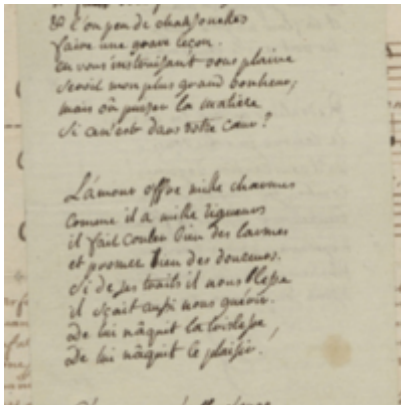 & l'on peu de chansonettes
faire une grave leçon.
en vous instruisant vous plaire
seroit mon plus grand bonheur,
mais où puiser la matière
si ce n'est dans votre cœur?
L'amour offre mille charmes
comme il a mille rigueurs
il fait couler bien des larmes
et promet bien des douceurs.
Si de ses traits il nous blesse
il sçait aussi nous guérir.
De lui nâquit la tristesse,
De lui nâquit le plaisir.